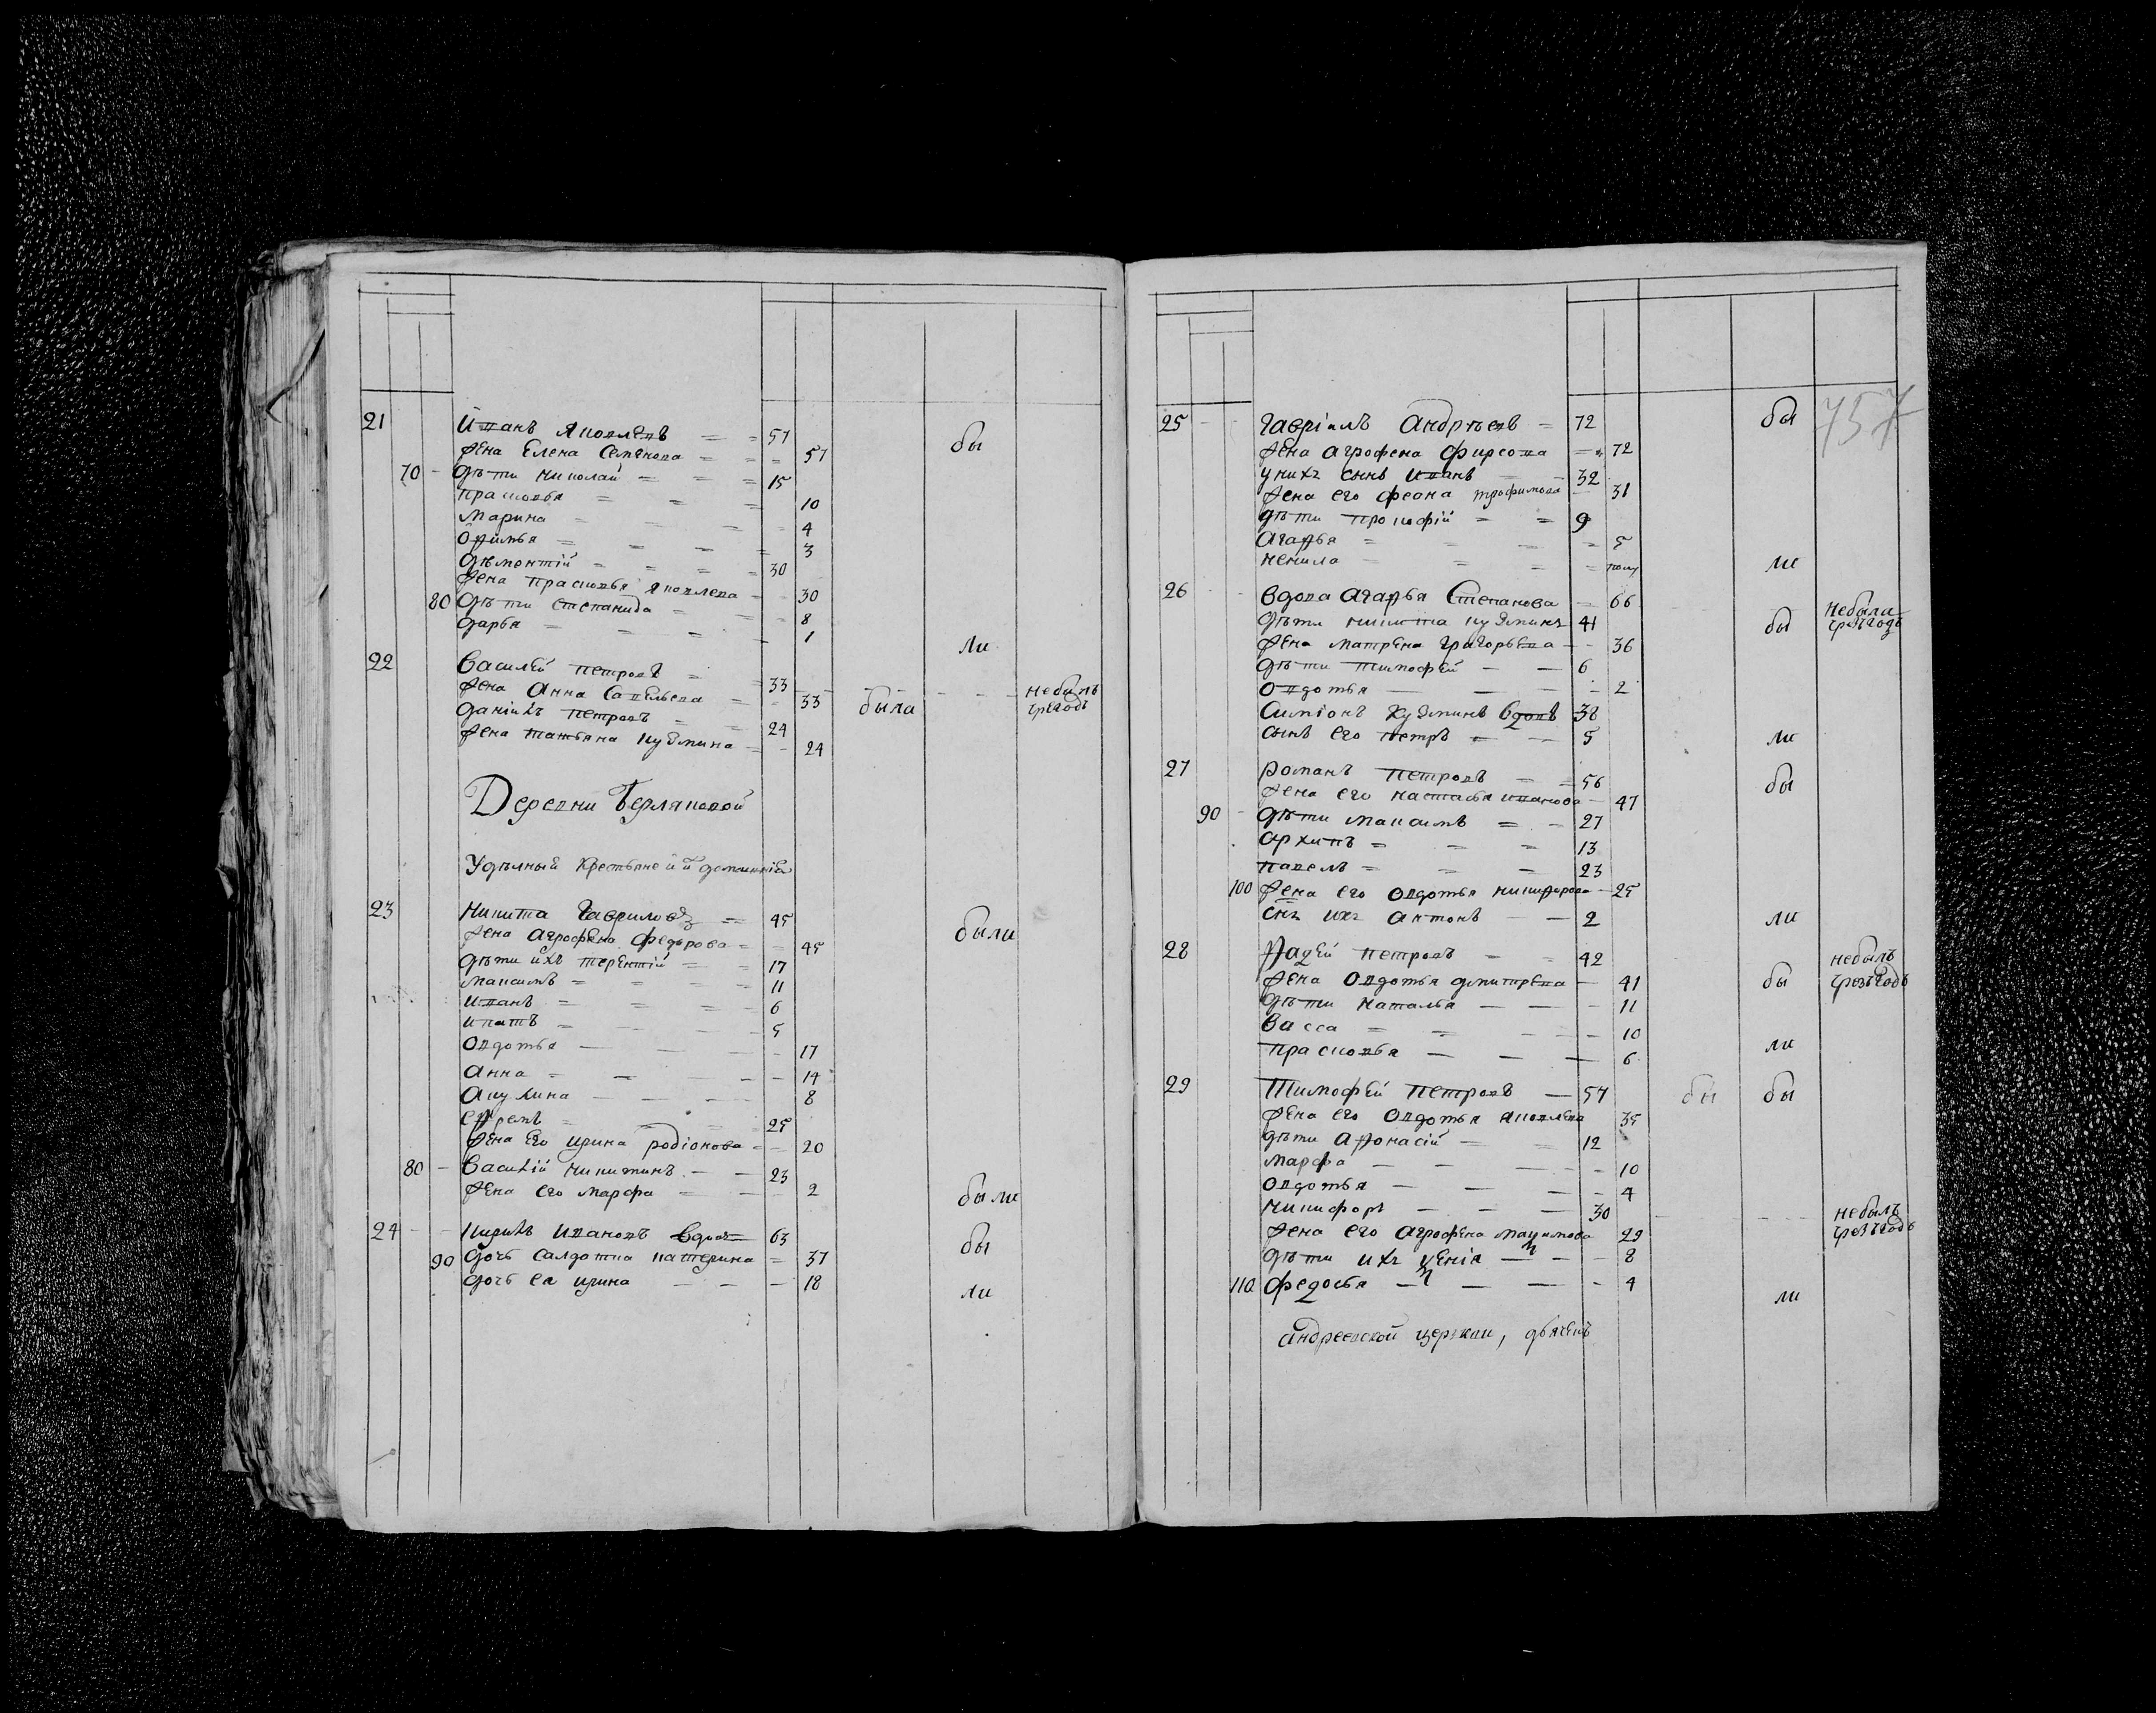 21 Иванъ Яковлевъ 57 бы
жена Елена Семенова 57
70 дѣти Николай 15
Прасковья 10
Марина 4
Офимья 3
Дементій 30
жена Прасковья Яковлева 30
80 дѣти Степанида 8
Дарья 1 ли
22 Василей Петровъ 33
жена Анна Савельева 33 была небылъ
Даніилъ Петровъ 24
жена Татьяна Кузмина 24
Деревни
Удѣлный Крестьяне и й домашнія
23 Никита Гавриловъ 45 были
жена Агрофена Федорова 45
дѣти ихъ Терентій 17
Максимъ 11
Иванъ 6
Ипатъ 5
Овдотья 17
Анна 14
Акулина 8
Ефремъ 25
жена Его Ирина Родіонова 20
80 Василій Никитинъ 23
жена его Марфа 2 были
24 Ивановъ вдовъ 63 бы
90 дочь салдатка Катерина 37
дочь Ея Ирина 18 ли
25 Гавріилъ Андрѣевъ 72 бы 757
жена Агрофена Фирсова 72
у нихъ сынъ Иванъ 32
жена его Феона Трофимова 31
дѣти Прокофій 9
Агафья 5
Ненила полу ли
26 Вдова Агафья Степанова 66 Небыли
дѣти Никита Кузминъ 41 бы чрезъ годъ
жена Матрена Григорьева 36
дѣти Тимофей 6
Овдотья 2
Симіонъ Кузминъ вдовъ 38
сынъ его Петръ 5 ли
27 Романъ Петровъ 56 бы
жена его Настасья Иванова 47
90 дѣти Максимъ 27
Архипъ 13
Павелъ 23
100 жена его Овдотья Никифорова 25
снъ ихъ Антонъ 2 ли
28 Фадей Петровъ 42 небылъ
жена Овдотья Дмитрева 41 бы чрезъ годъ
дѣти Наталья 11
Васса 10
Прасковья 6 ли
29 Тимофей Петровъ 57 бы бы
жена его Овдотья Яковлева 35
дѣти Афонасій 12
Марфа 10
Овдотья 4
Никифоръ 30 небылъ
жена его Агрофена Максимова 29 чрезъ годъ
дѣти ихъ 8
110 Федосья 4 ли
Андреевской церкви, дьячекъ